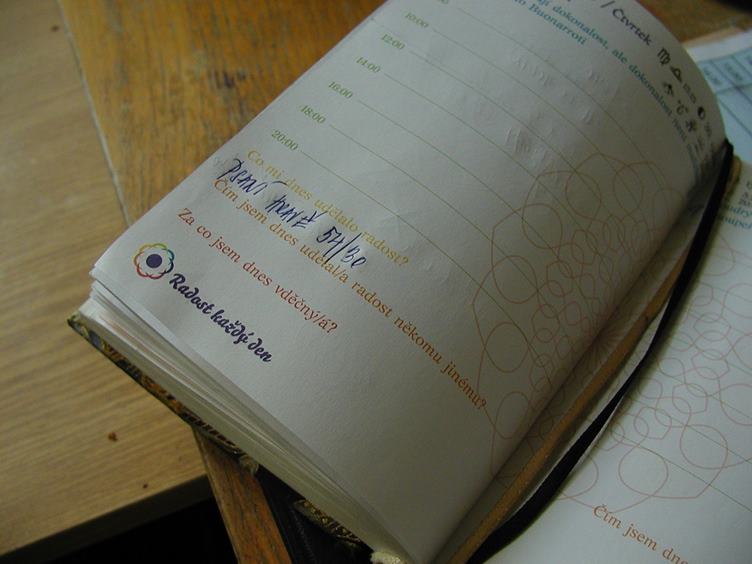 jí dokonalost, ale dokonalost
Buonarroti
/ Čtvrtek
10:00
12:00
14:00
16:00
18:00
20:00
Co mi dnes udělalo radost?
PSANÍ
Čím jsem dnes udělal/a radost někomu jinému?
Za co jsem dnes vděčný/á?
Radost každý den
Čím jsem dne